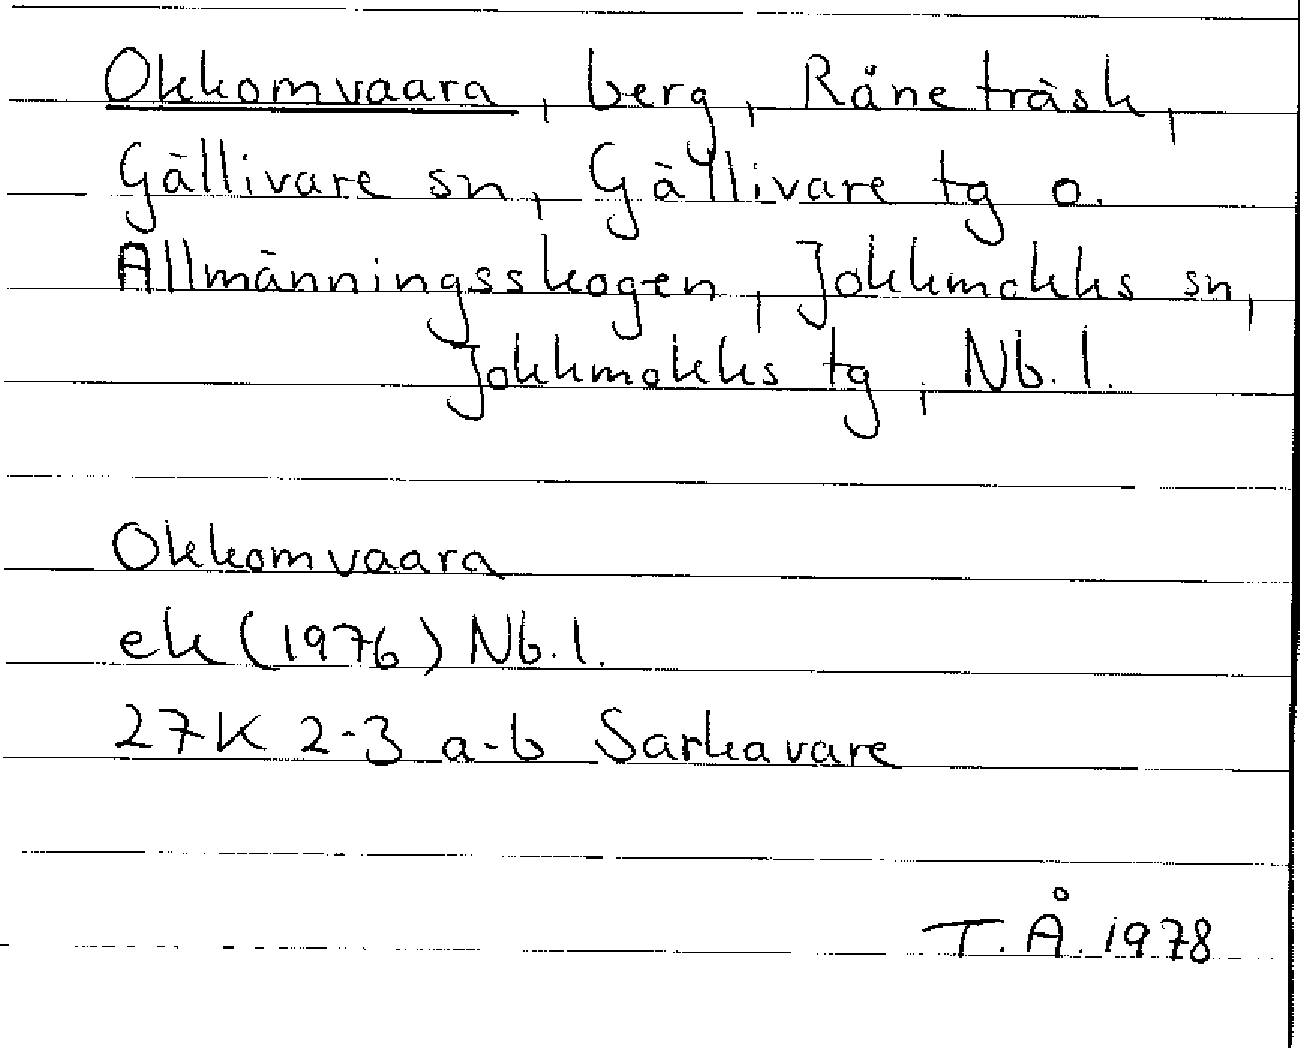 Okkomvaara, berg, Råneträsk,
Gällivare sn, Gällivare tg o.
Allmänningsskogen, Jokkmokks sn,
Jokkmokks tg, Nb. l.
Okkomvaara
ek (1976) Nb. l.
27K 2-3 a-b Sarkavare
T. Å. 1978